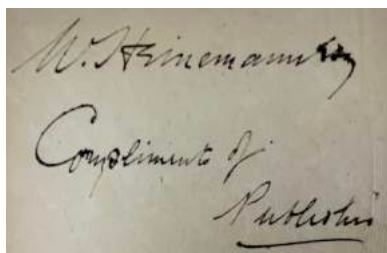 W. Heinemann Esq
Compliments of
Publisher